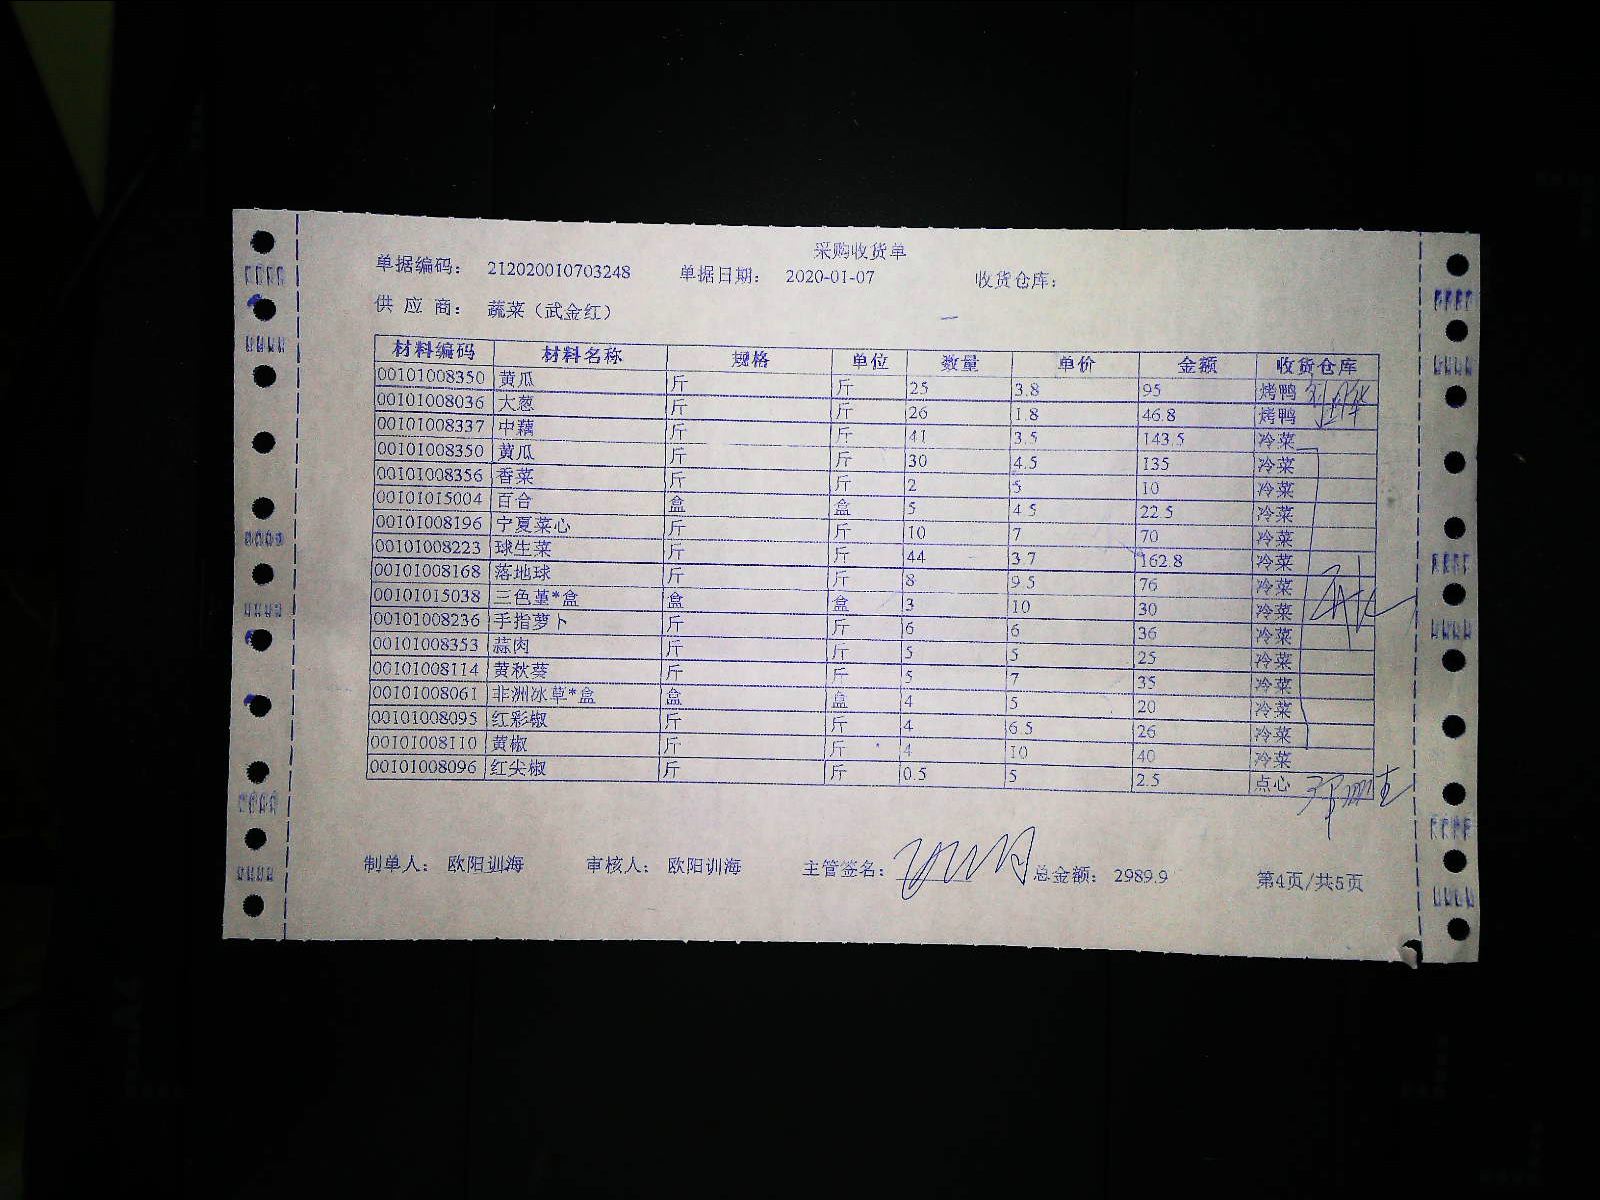 采购收货单
单据编码： 212020010703248 单据日期： 2020-01-07 收货仓库：
供 应 商： 蔬菜（武金红）
材料编码 材料名称 规格 单位 数量 单价 金额 收货仓库
00101008350 黄瓜 斤 斤 25 3.8 95 烤鸭
00101008036 大葱 斤 斤 26 1.8 46.8 烤鸭
00101008337 中藕 斤 斤 41 3.5 143.5 冷菜
00101008350 黄瓜 斤 斤 30 4.5 135 冷菜
00101008356 香菜 斤 斤 2 5 10 冷菜
00101015004 百合 盒 盒 5 4.5 22.5 冷菜
00101008196 宁夏菜心 斤 斤 10 7 70 冷菜
00101008223 球生菜 斤 斤 44 3.7 162.8 冷菜
00101008168 落地球 斤 斤 8 9.5 76 冷菜
00101015038 三色堇*盒 盒 盒 3 10 30 冷菜
00101008236 手指萝卜 斤 斤 6 6 36 冷菜
00101008353 蒜肉 斤 斤 5 5 25 冷菜
00101008114 黄秋葵 斤 斤 5 7 35 冷菜
00101008061 非洲冰草*盒 盒 盒 4 5 20 冷菜
00101008095 红彩椒 斤 斤 4 6.5 26 冷菜
00101008110 黄椒 斤 斤 4 10 40 冷菜
00101008096 红尖椒 斤 斤 0.5 5 2.5 点心
制单人： 欧阳训海 审核人： 欧阳训海 主管签名： 总金额： 2989.9 第4页/共5页